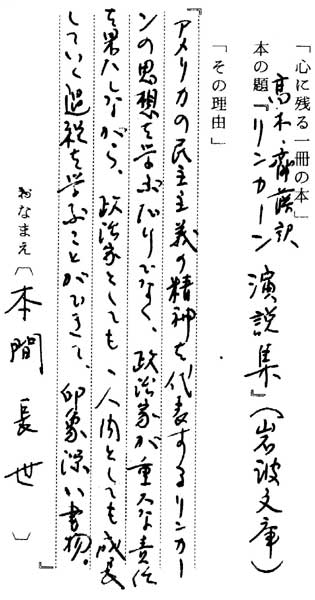 「心に残る一冊の本」
高木・齋藤訳
本の題『リンカーン演説集』(岩波文庫)
「その理由」
『アメリカの民主主義の精神を代表するリンカー
ンの思想を学ぶばかりでなく、政治家が重大な責任
を果たしながら、政治家としても、人間としても成長
していく過程を学ぶことができて、印象深い書物。』
おなまえ〔本間長世〕